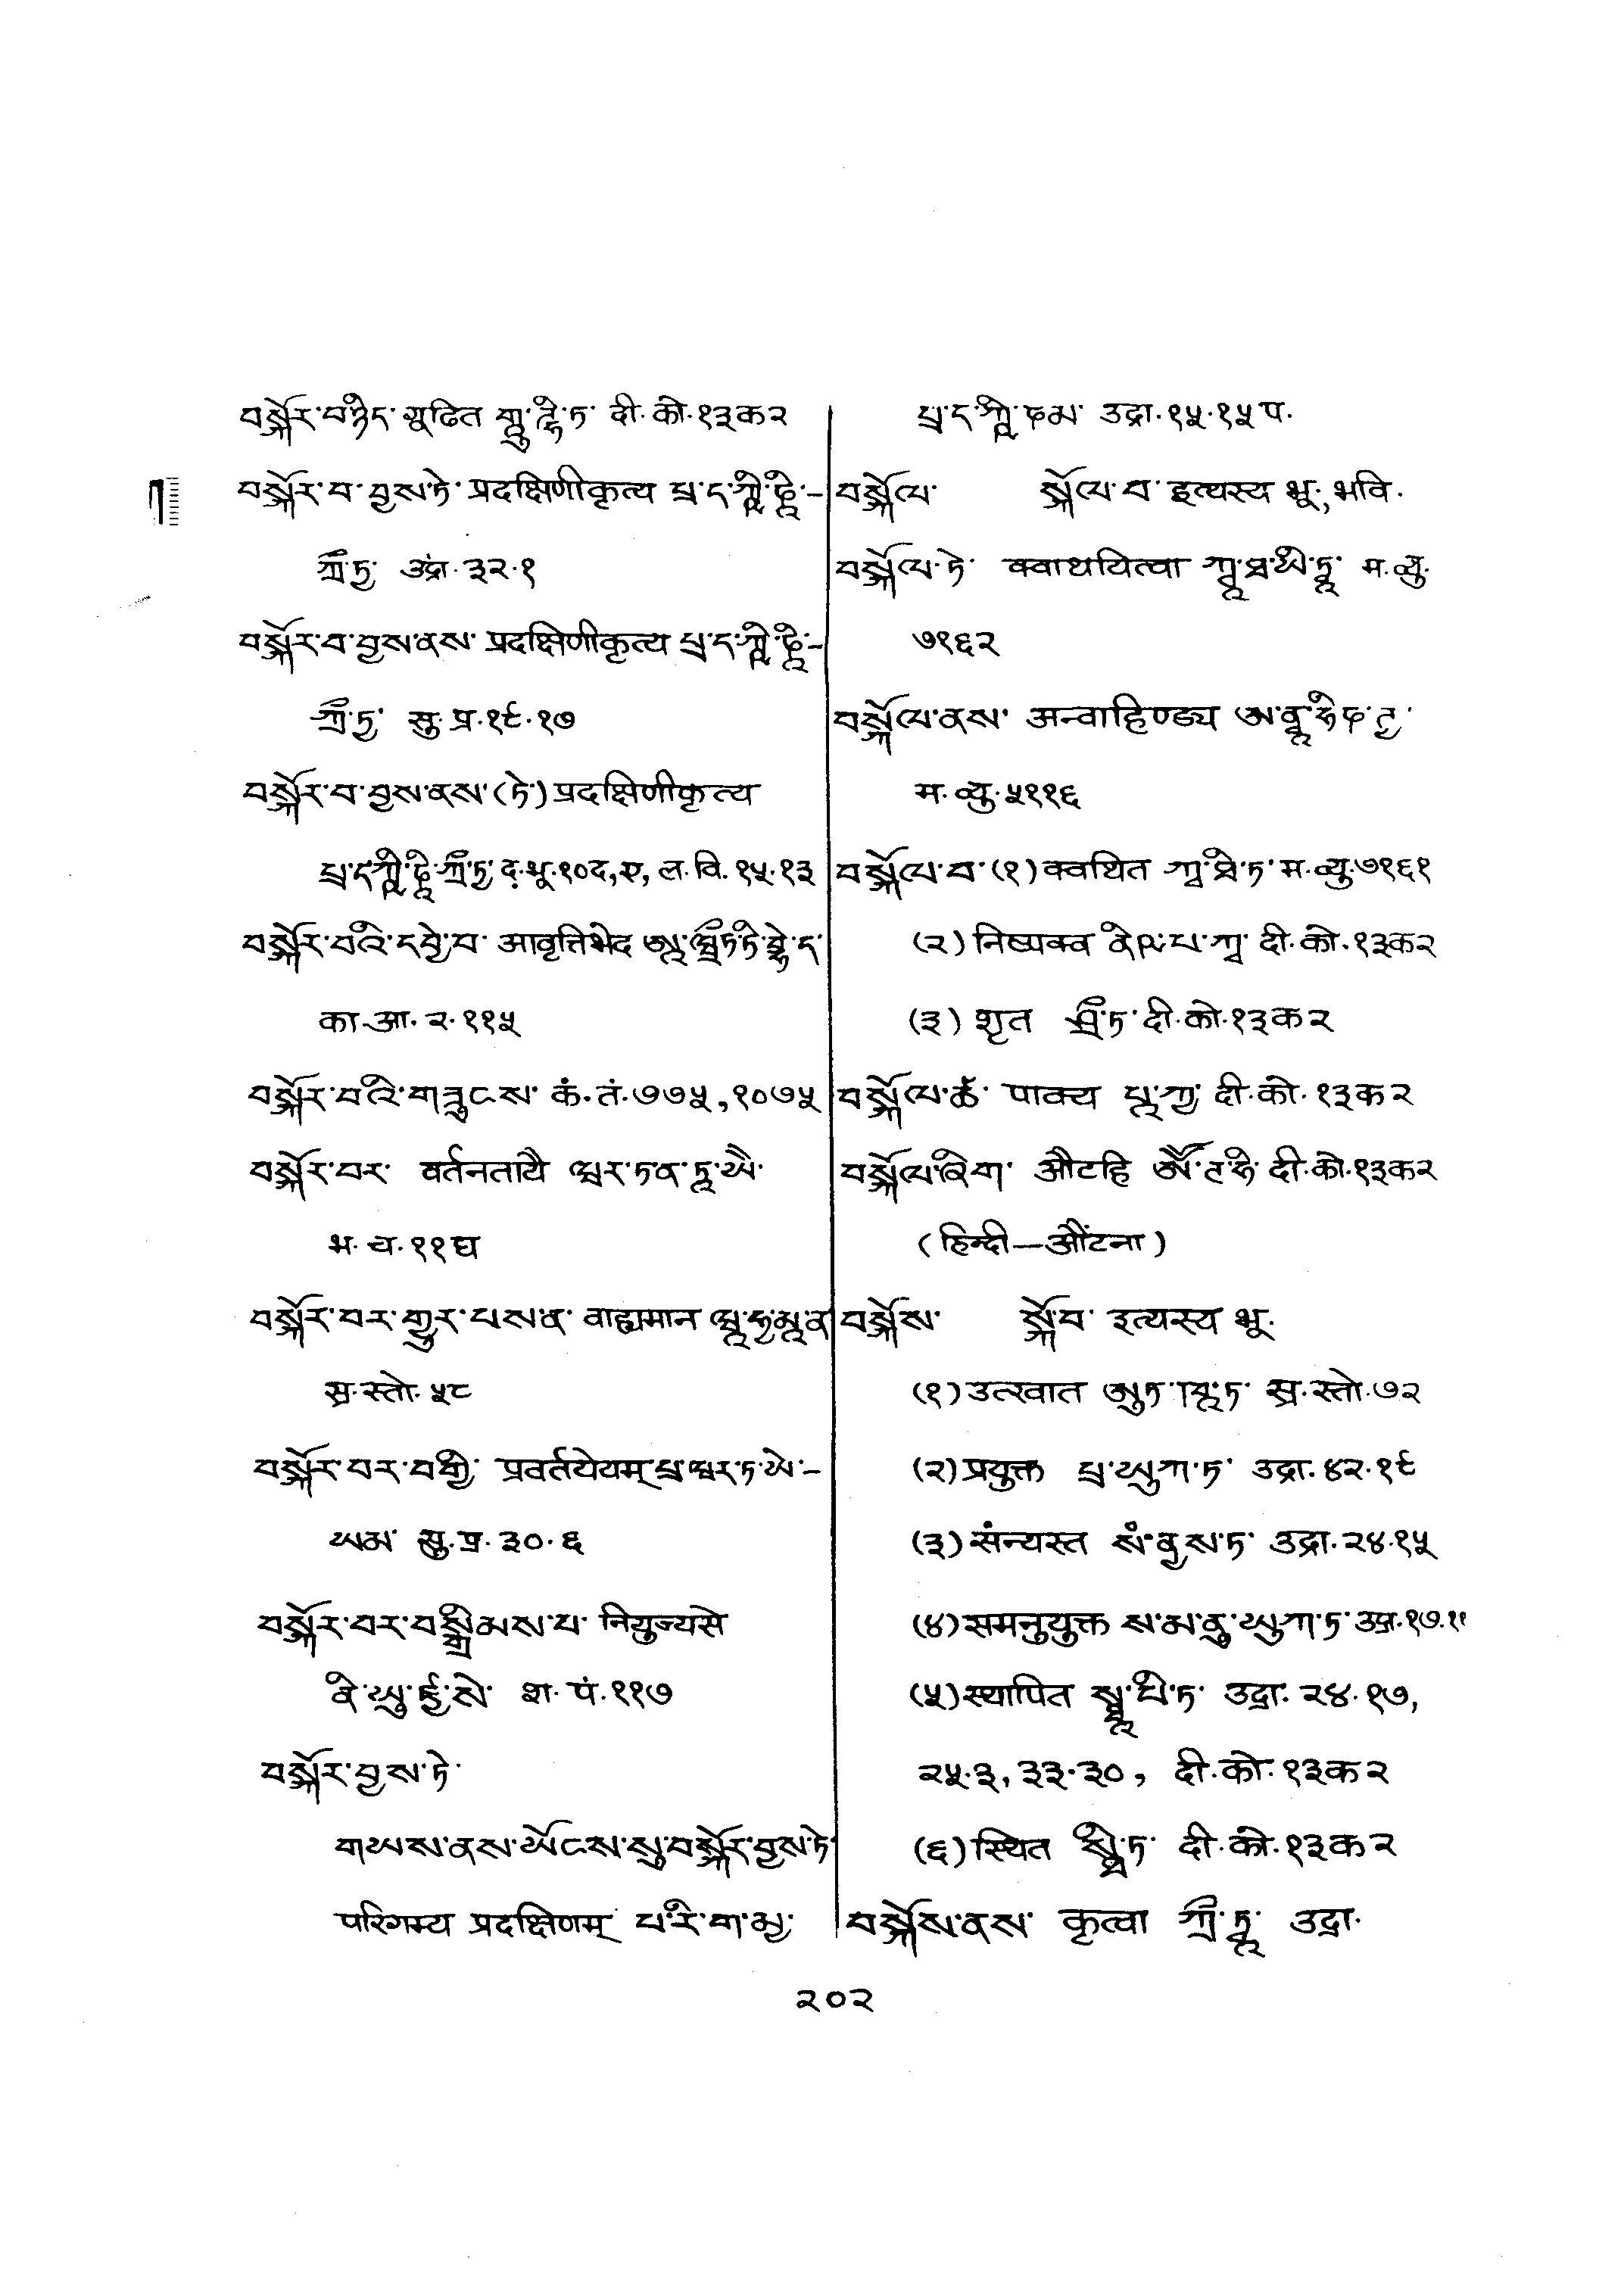 བསྐོར་བཉིད་ གྲུརིत གླུ་ཌྷི་ཏ་ दी.को.१३क२
བསྐོར་བ་བྱས་ཏེ་ प्रदक्षिणीकृत्य པྲ་ད་ཀྵི་ཎཱི་-
ཀྲྀ་ཏྱ་ उद्रा.३२.१
བསྐོར་བ་བྱས་ནས་ प्रदक्षिणीकृत्य པྲ་ད་ཀྵི་ཎཱི་-
ཀྲྀ་ཏྱ་ सु.प्र.१९.१७
བསྐོར་བ་བྱས་ནས་(ཏེ་) प्रदक्षिणीकृत्य
པྲ་ད་ཀྵི་ཎཱི་ཀྲྀ་ཏྱ་ द.भू.१०द,ए, ल.वि.१५.१३
བསྐོར་བའི་དབྱེ་བ་ आवृत्तिभेद ཨཱ་ཝྲྀཏ་ཏི་བྷེ་ད་
का.आ.२.११५
བསྐོར་བའི་གཟུངས་ कं.तं.७७५,१०७५
བསྐོར་བར་ वर्तनतायै ཝར་ཏ་ན་ཏཱ་ཡཻ་
भ.च.११घ
བསྐོར་བར་གྱུར་པས་ན་ वाह्यमान ཝཱ་ཧྱ་མཱ་ན
स्र.स्तो.५८
བསྐོར་བར་བགྱི་ प्रवर्तयेयम् པྲ་ཝར་ཏ་ཡེ་-
ཡམ་ सु.प्र.३०.६
བསྐོར་བར་བསྒྲིམས་པ་ नियुज्यसे
ནི་ཡུ་ཛྱ་སེ་ श.पं.११७
བསྐོར་བྱས་ཏེ་
གཡས་ནས་ཡོངས་སུ་བསྐོར་བྱས་ཏེ་
परिगम्य प्रदक्षिणम् པ་རི་ག་མྱ་
པྲ་ད་ཀྵི་ཎམ་ उद्रा.१५.१५प.
བསྐོལ་ སྐོལ་བ་ इत्यस्य भू., भवि.
བསྐོལ་ཏེ་ क्वाथयित्वा ཀྭཱ་ཐ་ཡི་ཏྭཱ་ म.व्यु.
७१६२
བསྐོལ་ནས་ अन्वाहिण्ड्य ཨ་ནྭཱ་ཧི་ཎ་ཌྱ་
म.व्यु.५११६
བསྐོལ་བ་ (१) क्वथित ཀྭ་ཐི་ཏ་ म.व्यु.७१६१
(२) निष्पक्व ནི་ཥ་པ་ཀྭ་ दी.को.१३क२
(३) शृत ཤྲྀ་ཏ་ दी.को.१३क२
བསྐོལ་ཚཱ་ पाक्य པཱ་ཀྱ་ दी.को.१३क२
བསྐོལ་ཞིག་ औटहि ཨཽ་ཊ་ཧི་ दी.को.१३क२
(हिन्दी—औंटना)
བསྐོས་ སྐོ་བ་ इत्यस्य भू.
(१) उत्खात ཨུཏ་ཁཱ་ཏ་ स्र.स्तो.७२
(२) प्रयुक्त པྲ་ཡུཀ་ཏ་ उद्रा.४२.१९
(३) संन्यस्त སཾ་ནྱས་ཏ་ उद्रा.२४.१५
(४) समनुयुक्त ས་མ་ནུ་ཡུཀ་ཏ་ उद्रा.१७.११
(५) स्थापित སྠཱ་པི་ཏ་ उद्रा.२४.१७,
२५.३, ३३.३०, दी.को.१३क२
(६) स्थित སྠི་ཏ་ दी.को.१३क२
བསྐོས་ནས་ कृत्वा ཀྲྀ་ཏྭཱ་ उद्रा.
२०२